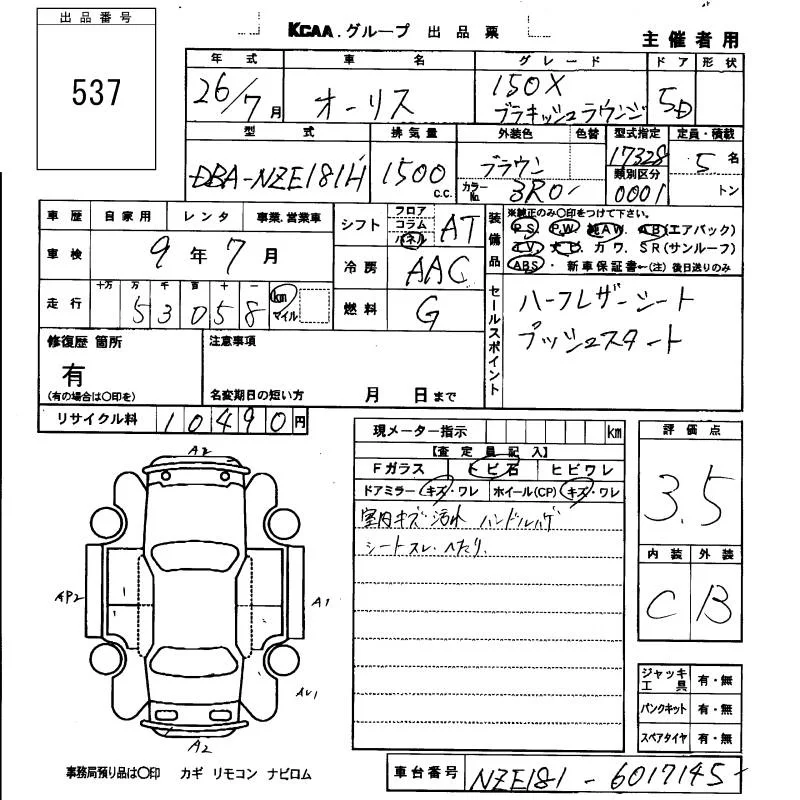 出品番号
537
KCAA.グループ 出品票
主催者用
年式 車名 グレード ドア 形状
26/7月 オーリス 150X
ブラキッシュラウンジ 5D
型式 排気量 外装色 色替 型式指定 定員・積載
DBA-NZE181H 1500 c.c. ブラウン 17328 5名
カラーNo. 3R0 類別区分
0001 トン
車歴 自家用 レンタ 事業.営業車
車検 9年7月
走行 十万 万 千 百 十 一
53058 km マイル
シフト フロア コラム パネル AT
冷房 AAC
燃料 G
装備品
※純正のみ〇印をつけて下さい。
PS PW 純AW AB(エアバック)
TV ナビ カワ SR(サンルーフ)
ABS 新車保証書←(注)後日送りのみ
セールスポイント
ハーフレザーシート
プッシュスタート
修復歴 箇所
有
(有の場合は〇印を)
注意事項
名変期日の短い方 月 日まで
リサイクル料 10490円
現メーター指示 km
【査定員記入】
Fガラス トビ石 ヒビワレ
ドアミラー キズ・ワレ ホイール(CP) キズ・ワレ
室内キズ 汚れ ハンドルハゲ
シートスレ、へたり、
評価点
3.5
内装 外装
C B
A2
AP2
A1
AU1
A2
ジャッキ工具 有・無
パンクキット 有・無
スペアタイヤ 有・無
事務局預り品は〇印 カギ リモコン ナビロム
車台番号 NZE181-6017145